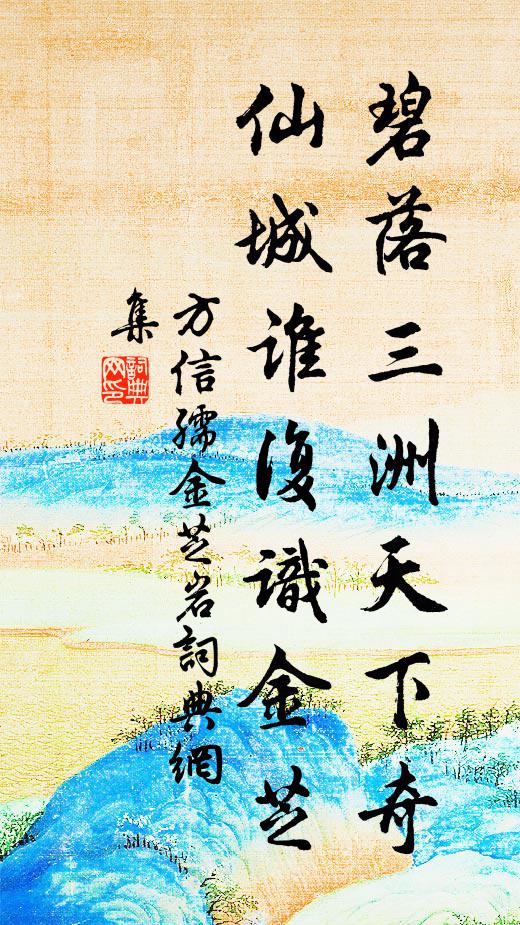 碧落三洲天下奇
仙城誰復識金芝
方信孺金芝岩詞典網
集
詞典網印